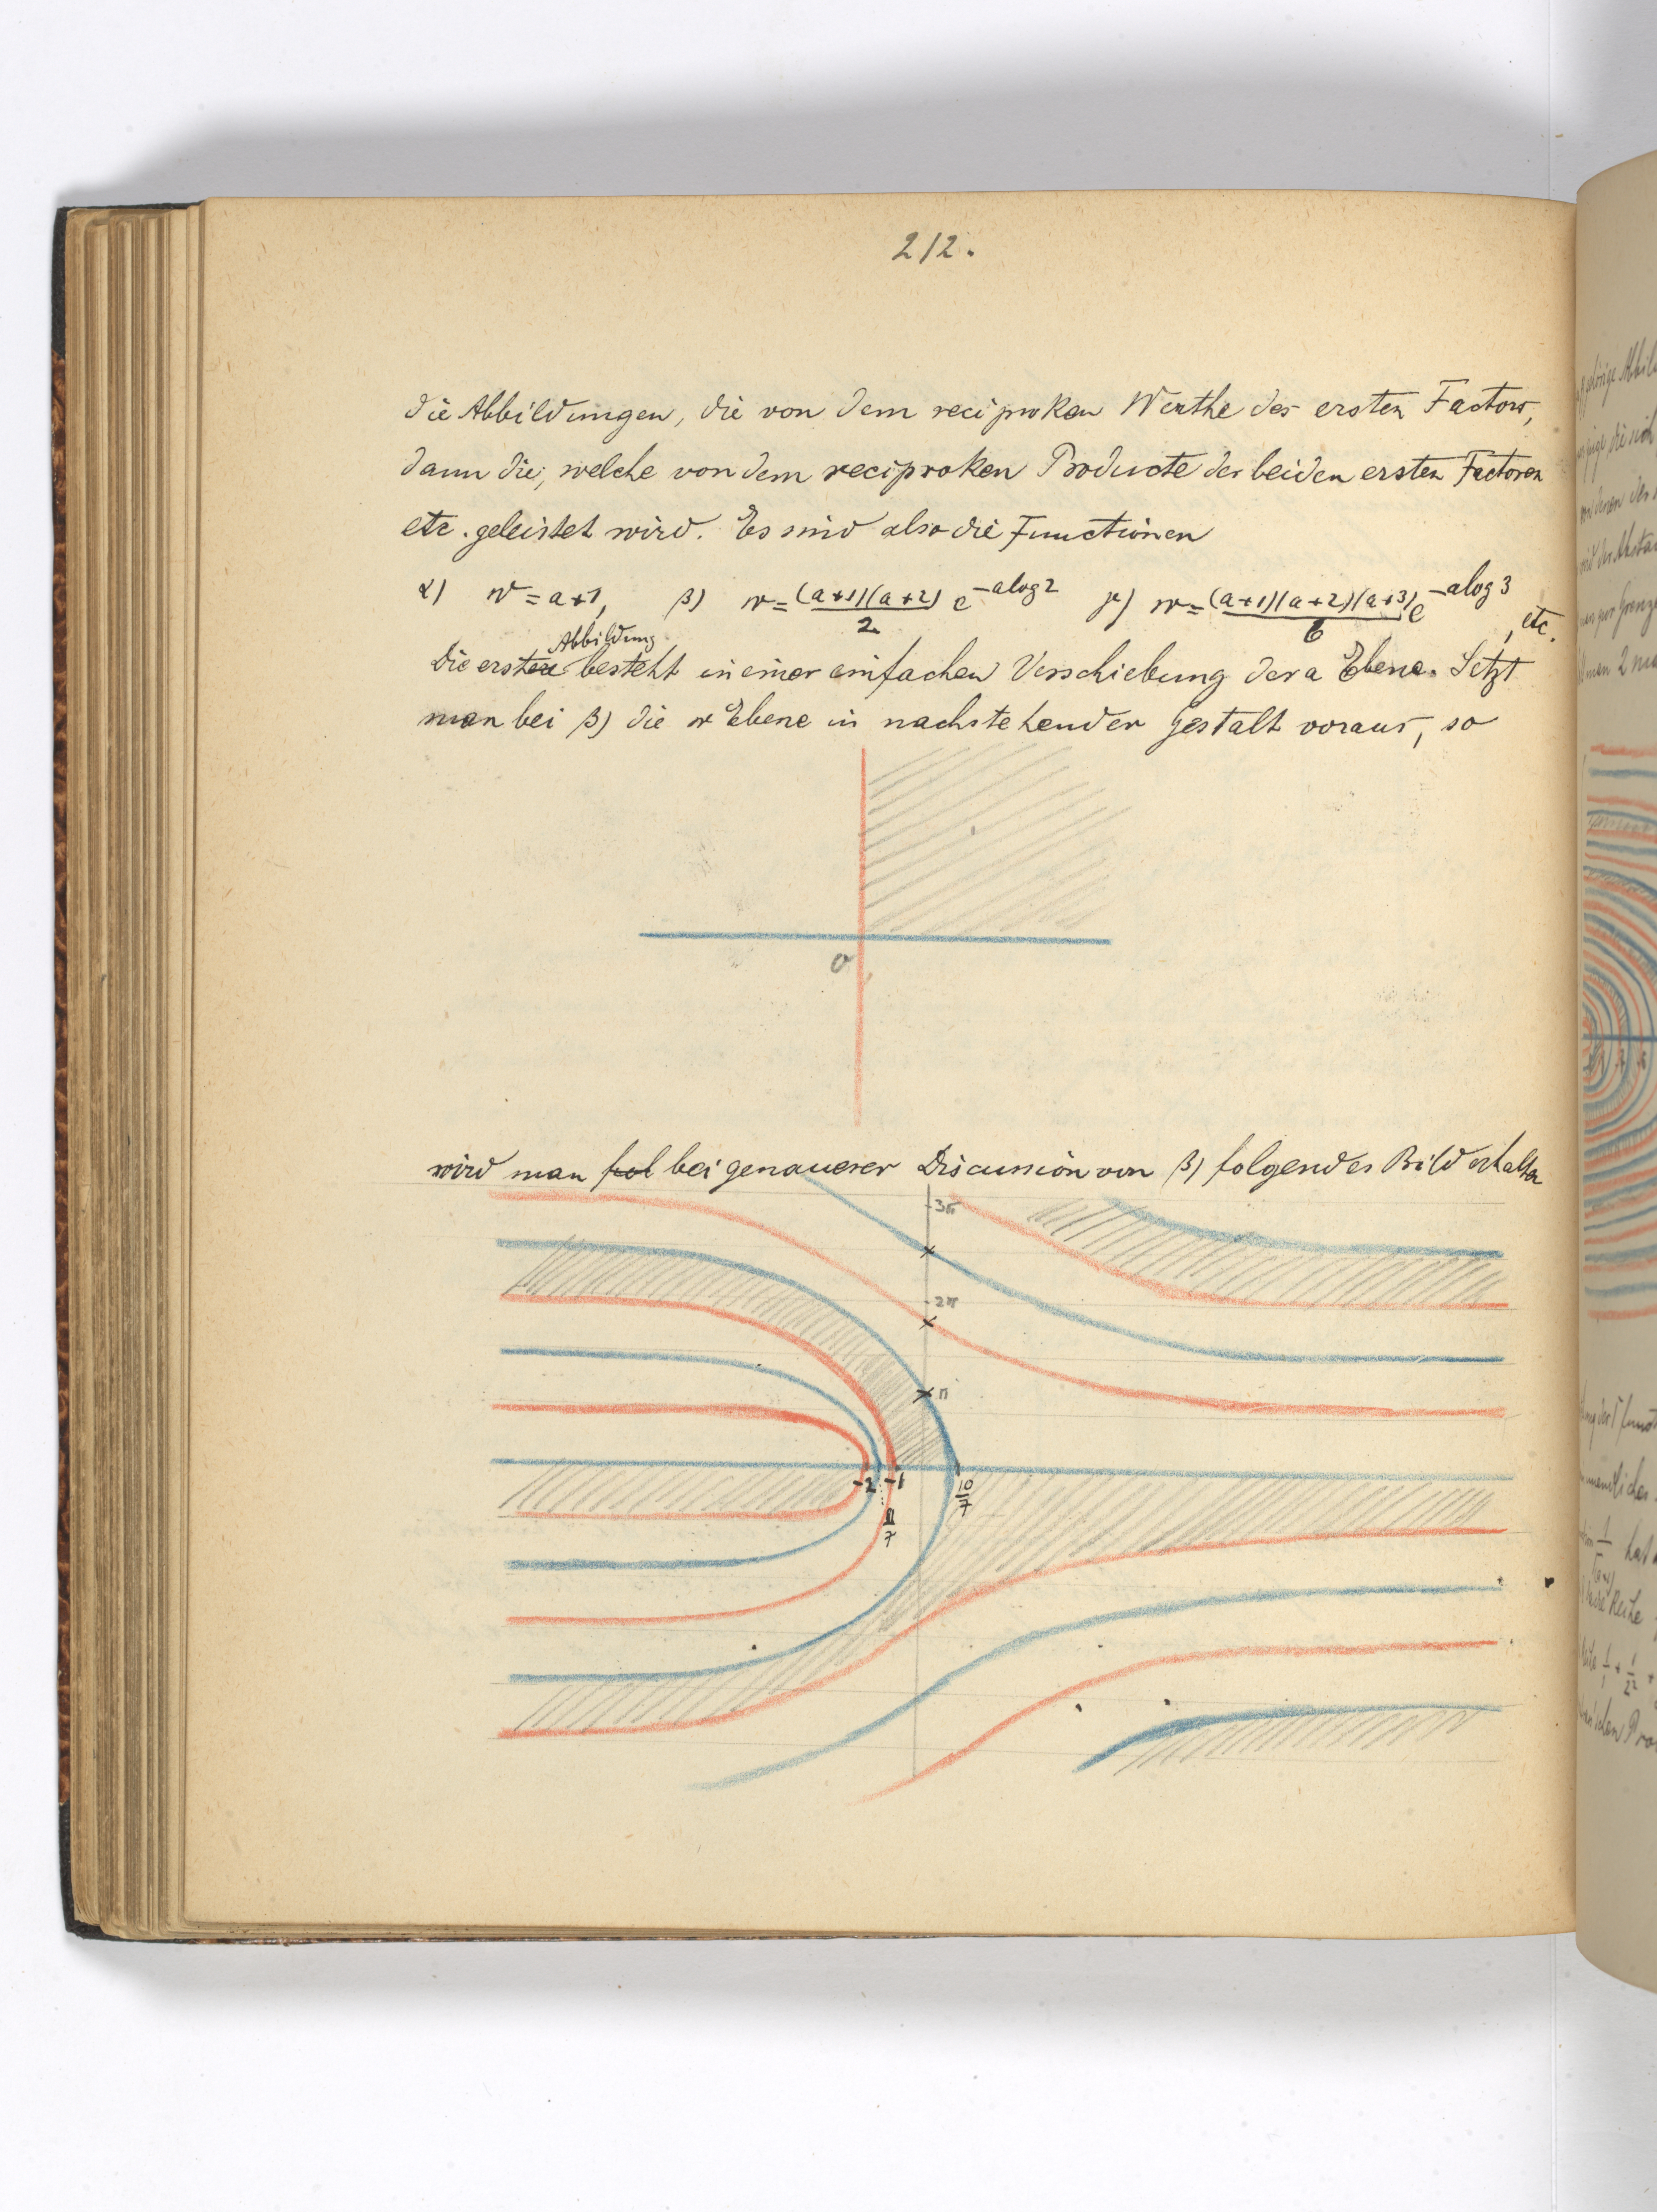 212.
die Abbildungen, die von dem reciproken Werthe des ersten Factors,
dann die, welche von dem reciproken Producte der beiden ersten Factoren
etc. geleistet wird. Es sind also die Functionen
α) w = a+1, β) w = (a+1)(a+2)/2 e^{-a log 2} γ) w = (a+1)(a+2)(a+3)/6 e^{-a log 3}, etc.
Abbildung
Die erste besteht in einer einfachen Verschiebung der a Ebene. Setzt
man bei β) die w Ebene in nachstehender Gestalt voraus, so
0
wird man fol bei genauerer Discussion von β) folgendes Bild erhalten
3π
2π
π
-2 -1
10/7